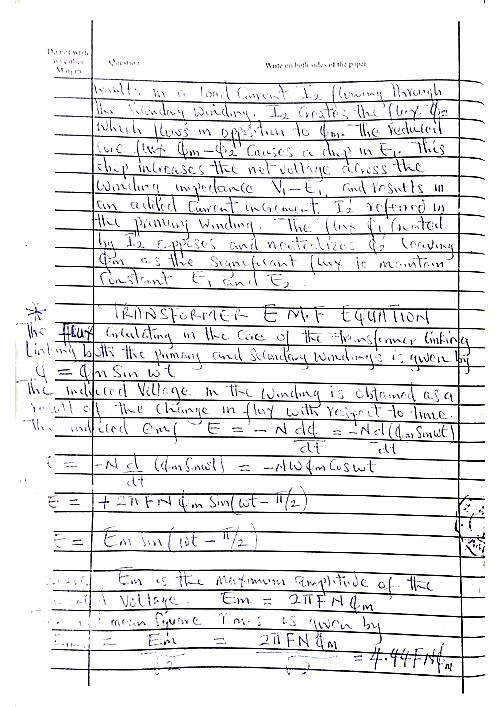 Do not write
on either
Margin
Question
Write on both sides of the paper
results in a load current I2 flowing through
the secondary winding. I2 creates the flux φ2
which flows in oppstion to φm. The reduced
core flux φm - φ2 causes a drop in E1. This
drop increases the net voltage across the
winding impedance V1 - E1, and results in
an added current increment I2' referred in
the primary winding. The flux φ1 created
by I2 opposes and neutralizes φ2 leaving
φm as the significant flux to maintain
Constant E1 and E2.
* TRANSFORMER E M.F EQUATION
The flux circulating in the core of the transformer linking
linking both the primary and secondary windings is given by
φ = φm Sin wt
The induced Voltage in the winding is obtained as a
result of the change in flux with respect to time.
The induced emf E = -N dφ/dt = -N d(φm Sinwt)/dt
E = -N d/dt (φm Sinwt) = -NWφm Coswt
E = +2πFNφm Sin(wt - π/2)
E = Em Sin(wt - π/2)
Em is the maximum amplitude of the
Voltage. Em = 2πFNφm
mean square r m.s is given by
= Em/√2 = 2πFNφm/√2 = 4.44FNφm